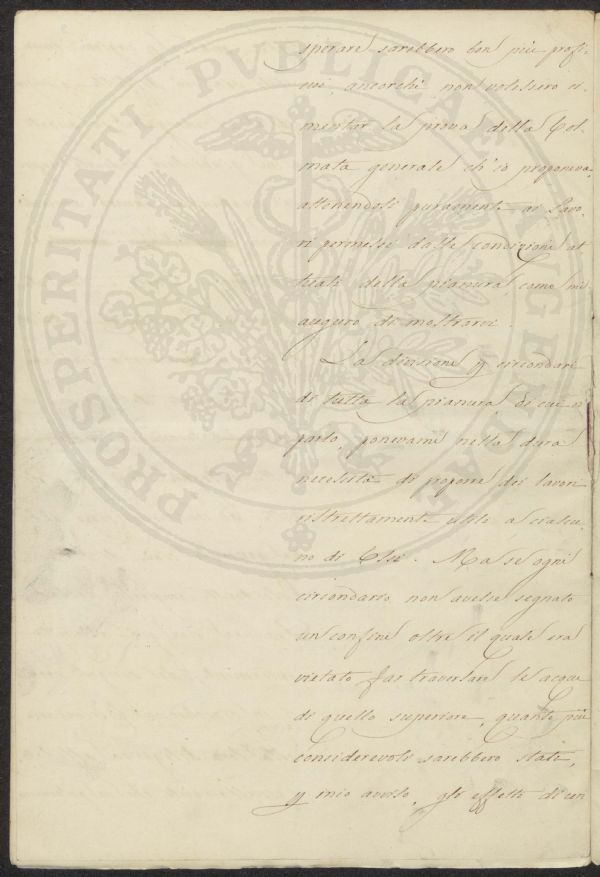 PROSPERITATI PVBLICAE AVGENDAE
sperare sarebbero ben più profi-
cui, ancorchè non volessero ci-
mentar la prova della Col-
mata generale ch'io proponeva,
attenendosi puramente ai Lavo-
ri permessi dalle condizioni at
tuali della pianura, come mi
auguro di mostrarvi.
La divisione p circondari
di tutta la pianura, di cui vi
parlo, ponevami nella dura
necessità di proporre dei lavori
ristrettamente utili a ciascu-
no di Essi. Ma se ogni
circondario non avesse segnato
un confine oltre il quale era
vietato far traversare le acque
di quello superiore, quanto più
considerevoli sarebbero stati,
p mio avviso, gli effetti di con